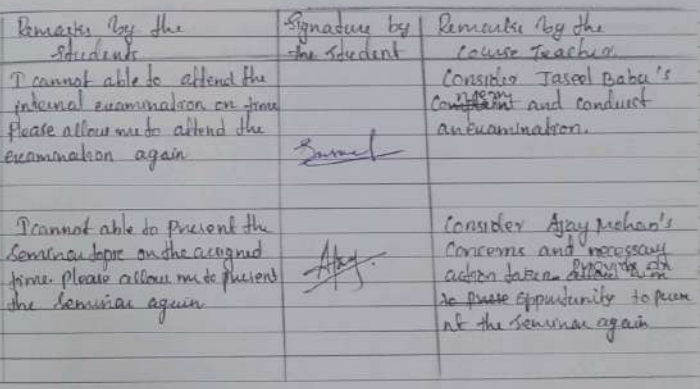 Remarks by the
students
Signature by
the student
Remarks by the
course Teacher
I cannot able to attend the
internal examination on time
Please allow me to attend the
examination again
Consider Jaseel Babu's
concern and conduct
an examination.
I cannot able to present the
Seminar topic on the assigned
time. Please allow me to present
the Seminar again
Ajay.
Consider Ajay Mohan's
Concerns and necessary
action taken. Provide an
oppurtunity to prese
nt the seminar again